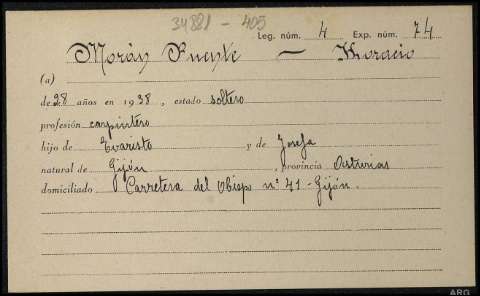 34821 - 405
Leg. núm. 4 Exp. núm. 74
Morán Puente — Horacio
(a)
de 28 años en 1938, estado soltero
profesión carpintero
hijo de Evaristo y de Josefa
natural de Gijón, provincia Asturias
domiciliado Carretera del Obispo nº 41 - Gijón.
ARG